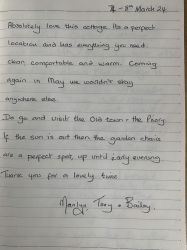 1st - 8th March 24.
Absolutely love this cottage. Its a perfect
location and has everything you need.
clean, comfortable and warm. Coming
again in May we wouldn't stay
anywhere else.
Do go and visit the Old town + the Priory.
If the sun is out then the garden chairs
are a perfect spot, up until early evening.
Thank you for a lovely time
Marilyn, Tony + Bailey.